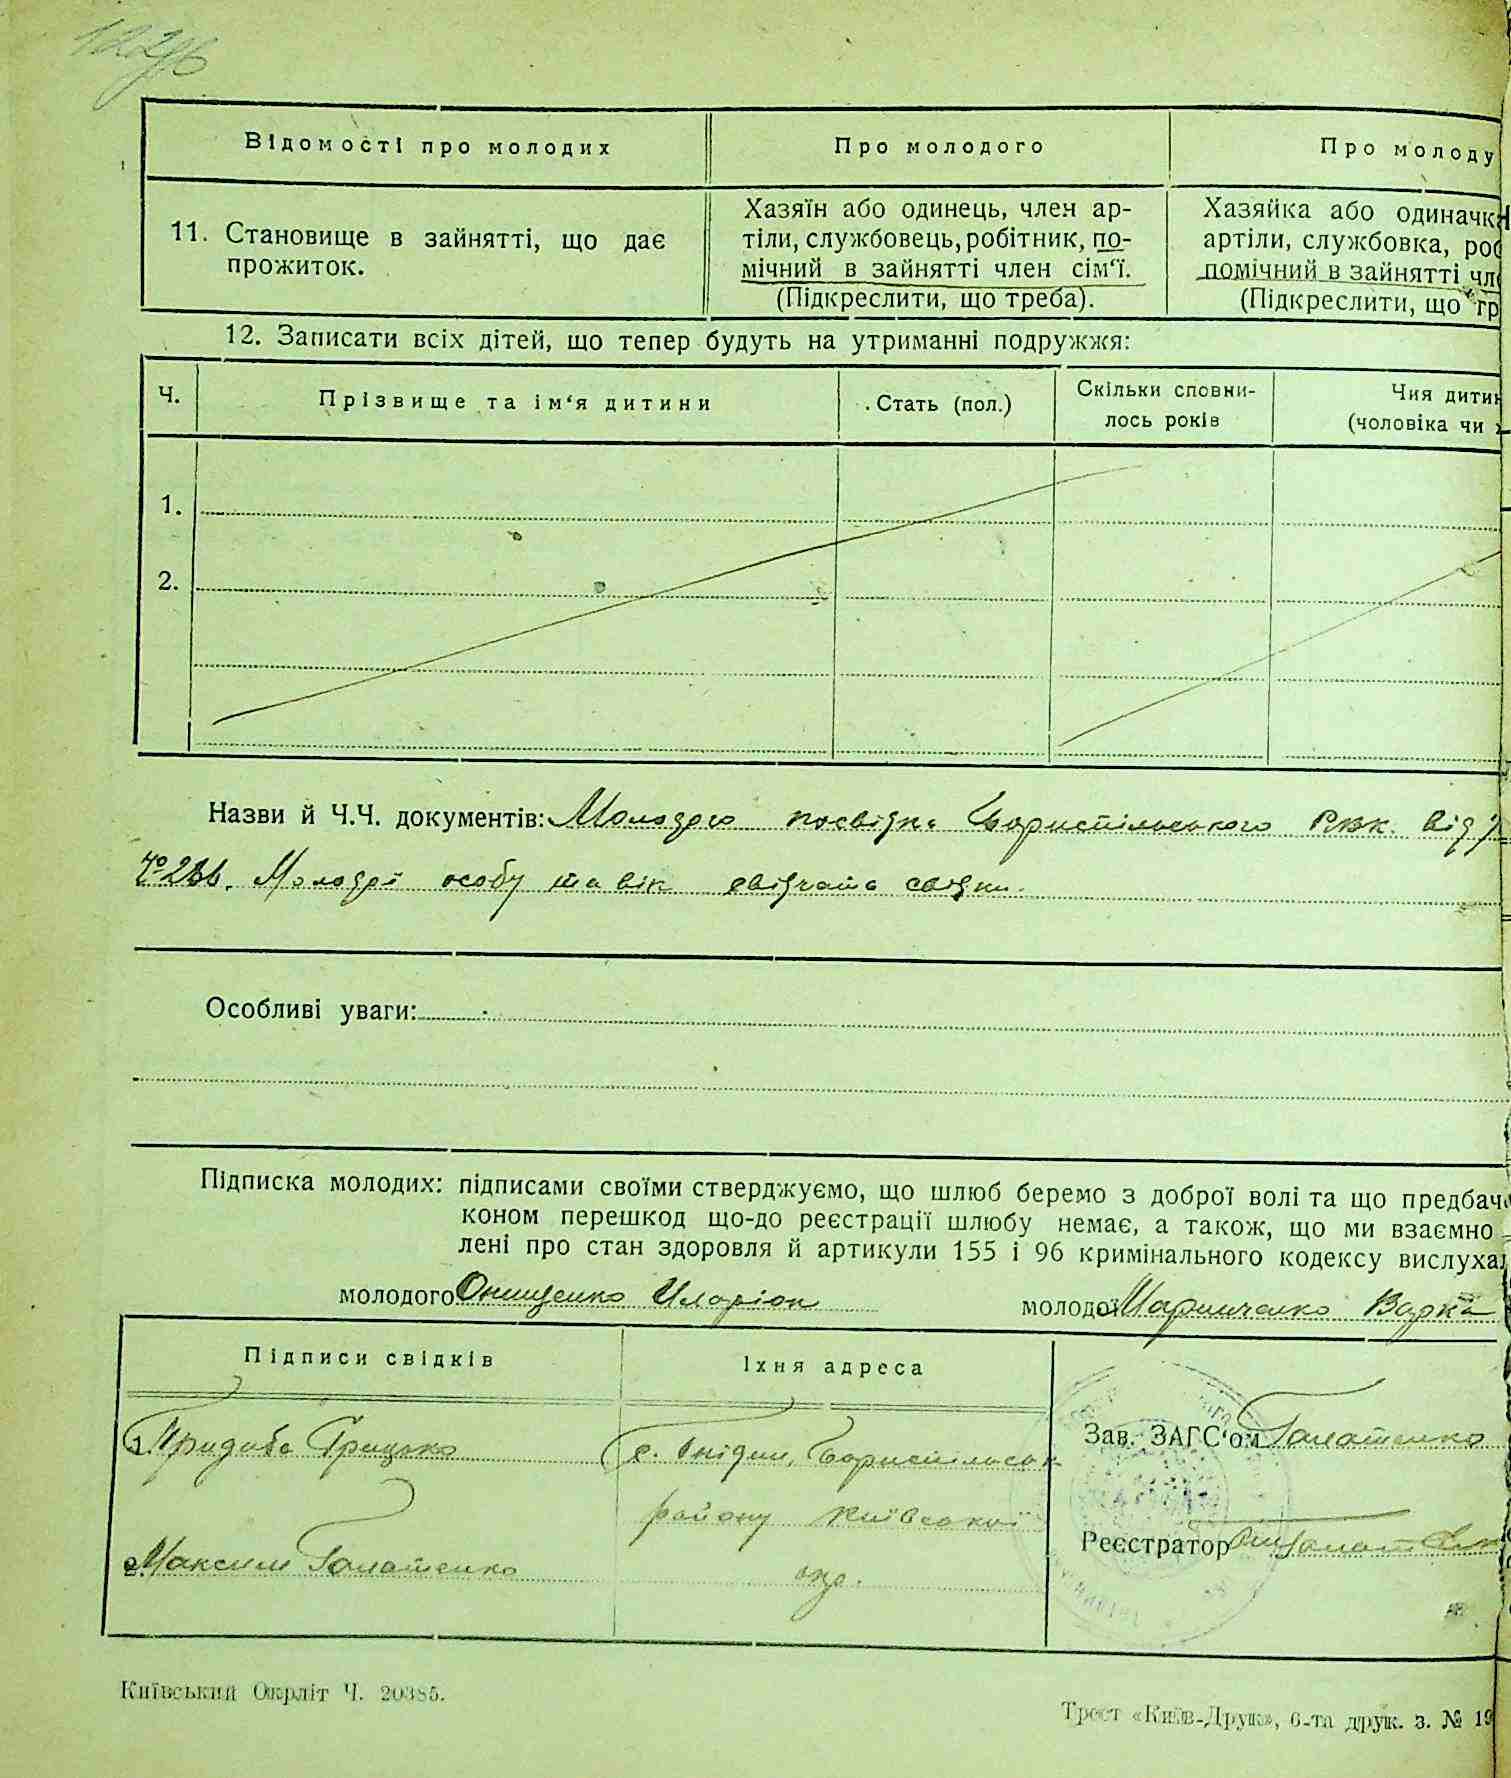 Відомості про молодих
Про молодого
Про молоду
11. Становище в зайнятті, що дає
прожиток.
Хазяїн або одинець, член ар-
тіли, службовець, робітник, по-
мічний в зайнятті член сім'ї.
(Підкреслити, що треба).
Хазяйка або одиначка
артіли, службовка, роб
помічний в зайнятті чле
(Підкреслити, що тр
12. Записати всіх дітей, що тепер будуть на утриманні подружжя:
Ч.
Прізвище та ім'я дитини
Стать (пол.)
Скільки сповни-
лось років
Чия дитин
(чоловіка чи
1.
2.
Назви й Ч.Ч. документів: Молодого посвідка Бориспільського РВК. від
Молодої особу та вік свідчать свідки.
Особливі уваги:
Підписка молодих: підписами своїми стверджуємо, що шлюб беремо з доброї волі та що предбаче
коном перешкод що-до реєстрації шлюбу немає, а також, що ми взаємно
лені про стан здоровля й артикули 155 і 96 кримінального кодексу вислуха
молодого Онищенко Иларіон
молодої Марниченко Варка
Підписи свідків
Їхня адреса
1. Придиба Грицько
Бориспільськ
району Київської
окр.
2. Максим Галатенко
Зав. ЗАГС'ом Галатенко
Реєстратор
Київський Окрліт Ч. 20385.
Трест «Київ-Друк», 6-та друк. з. № 19